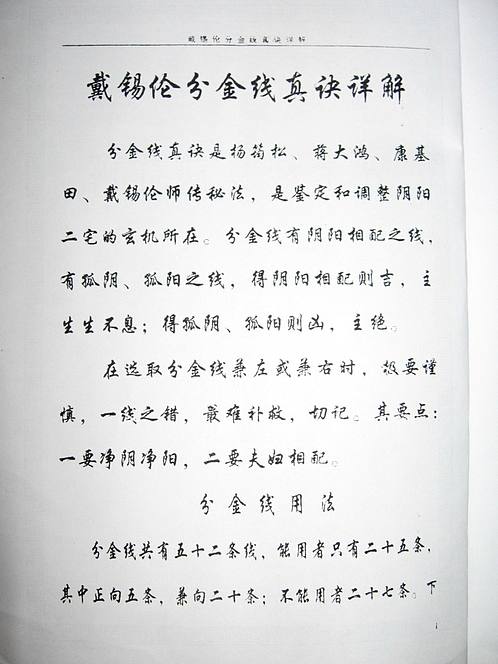 戴锡伦分金线真诀详解
戴锡伦分金线真诀详解
分金线真诀是杨筠松、蒋大鸿、康基
田、戴锡伦师传秘法，是鉴定和调整阴阳
二宅的玄机所在。分金线有阴阳相配之线，
有孤阴、孤阳之线，得阴阳相配则吉，主
生生不息；得孤阴、孤阳则凶，主绝。
在选取分金线兼左或兼右时，极要谨
慎，一线之错，最难补救，切记。其要点：
一要净阴净阳，二要夫妇相配。
分金线用法
分金线共有五十二条线，能用者只有二十五条，
其中正向五条，兼向二十条；不能用者二十七条。下
1